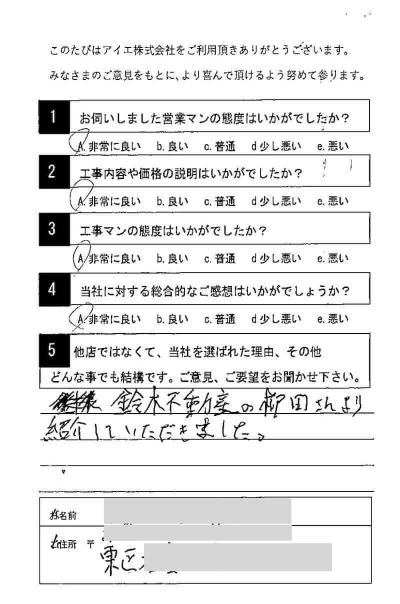 このたびはアイエ株式会社をご利用頂きありがとうございます。
みなさまのご意見をもとに、より喜んで頂けるよう努めて参ります。
1 お伺いしました営業マンの態度はいかがでしたか？
A.非常に良い b.良い c.普通 d少し悪い e.悪い
2 工事内容や価格の説明はいかがでしたか？
A.非常に良い b.良い c.普通 d少し悪い e.悪い
3 工事マンの態度はいかがでしたか？
A.非常に良い b.良い c.普通 d少し悪い e.悪い
4 当社に対する総合的なご感想はいかがでしょうか？
A.非常に良い b.良い c.普通 d少し悪い e.悪い
5 他店ではなくて、当社を選ばれた理由、その他
どんな事でも結構です。ご意見、ご要望をお聞かせ下さい。
鈴木不動産の柳田さんより
紹介していただきました。
お名前
ご住所 〒
東区